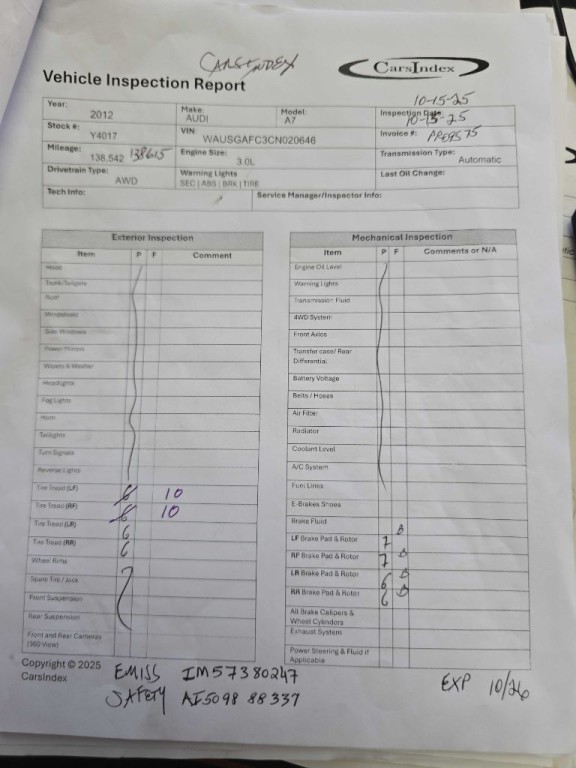 CARSINDEX
CarsIndex
Vehicle Inspection Report
10-15-25
Year: 2012 Make: AUDI Model: A7 Inspection Date: 10-15-25
Stock #: Y4017 VIN: WAUSGAFC3CN020646 Invoice #:
Mileage: 138,542 138615 Engine Size: 3.0L Transmission Type: Automatic
Drivetrain Type: AWD Warning Lights SEC | ABS | BRK | TIRE Last Oil Change:
Tech Info: Service Manager/Inspector Info:
Exterior Inspection
Item P F Comment
Hood
Trunk/Tailgate
Roof
Windshield
Side Windows
Power Mirrors
Wipers & Washer
Headlights
Fog Lights
Horn
Taillights
Turn Signals
Reverse Lights
Tire Tread (LF) 6 10
Tire Tread (RF) 6 10
Tire Tread (LR) 6
Tire Tread (RR) 6
Wheel Rims
Spare Tire / Jack
Front Suspension
Rear Suspension
Front and Rear Cameras
(360 View)
Mechanical Inspection
Item P F Comments or N/A
Engine Oil Level
Warning Lights
Transmission Fluid
4WD System
Front Axles
Transfer case/ Rear
Differential
Battery Voltage
Belts / Hoses
Air Filter
Radiator
Coolant Level
A/C System
Fuel Lines
E-Brakes Shoes
Brake Fluid
LF Brake Pad & Rotor 7
RF Brake Pad & Rotor 7
LR Brake Pad & Rotor 6
RR Brake Pad & Rotor 6
All Brake Calipers &
Wheel Cylinders
Exhaust System
Power Steering & Fluid if
Applicable
Copyright © 2025
CarsIndex
EMISS IM57380247
SAFETY AI5098 88337
EXP 10/26